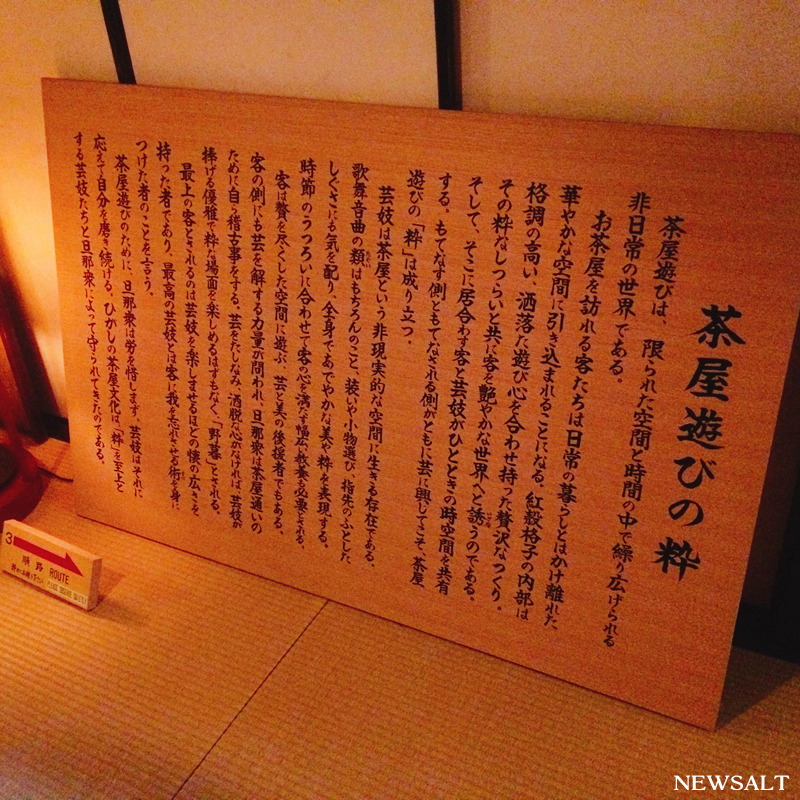 茶屋遊びの粋
茶屋遊びは、限られた空間と時間の中で繰り広げられる
非日常の世界である。
お茶屋を訪れる客たちは日常の暮らしとはかけ離れた
華やかな空間に引き込まれることになる。紅殻格子の内部は
格調の高い、洒落た遊び心を合わせ持った贅沢なつくり。
その粋なしつらいと共に客を艶やかな世界へと誘うのである。
そして、そこに居合わす客と芸妓がひとときの時空間を共有
する。もてなす側ともてなされる側がともに芸に興じてこそ、茶屋
遊びの「粋」は成り立つ。
芸妓は茶屋という非現実的な空間に生きる存在である。
歌舞音曲の類はもちろんのこと、装いや小物選び、指先のふとした
しぐさにも気を配り、全身であでやかな美や粋を表現する。
時節のうつろいに合わせて客の心を満たす幅広い教養も必要とされる。
客は贅を尽くした空間に遊ぶ、芸と美の後援者でもある。
客の側にも芸を解する力量が問われ、旦那衆は茶屋通いの
ために自ら稽古事をする。芸をたしなみ、洒脱な心がなければ、芸妓が
捧げる優雅で粋な場面を楽しめるはずもなく、「野暮」とされる。
最上の客とされるのは芸妓を楽しませるほどの懐の広さを
持った者であり、最高の芸妓とは客に我を忘れさせる術を身に
つけた者のことを言う。
茶屋遊びのために、旦那衆は労を惜しまず、芸妓はそれに
応えて自分を磨き続ける。ひがしの茶屋文化は、「粋」を至上と
する芸妓たちと旦那衆によって守られてきたのである。
3
順路 ROUTE
NEWSALT